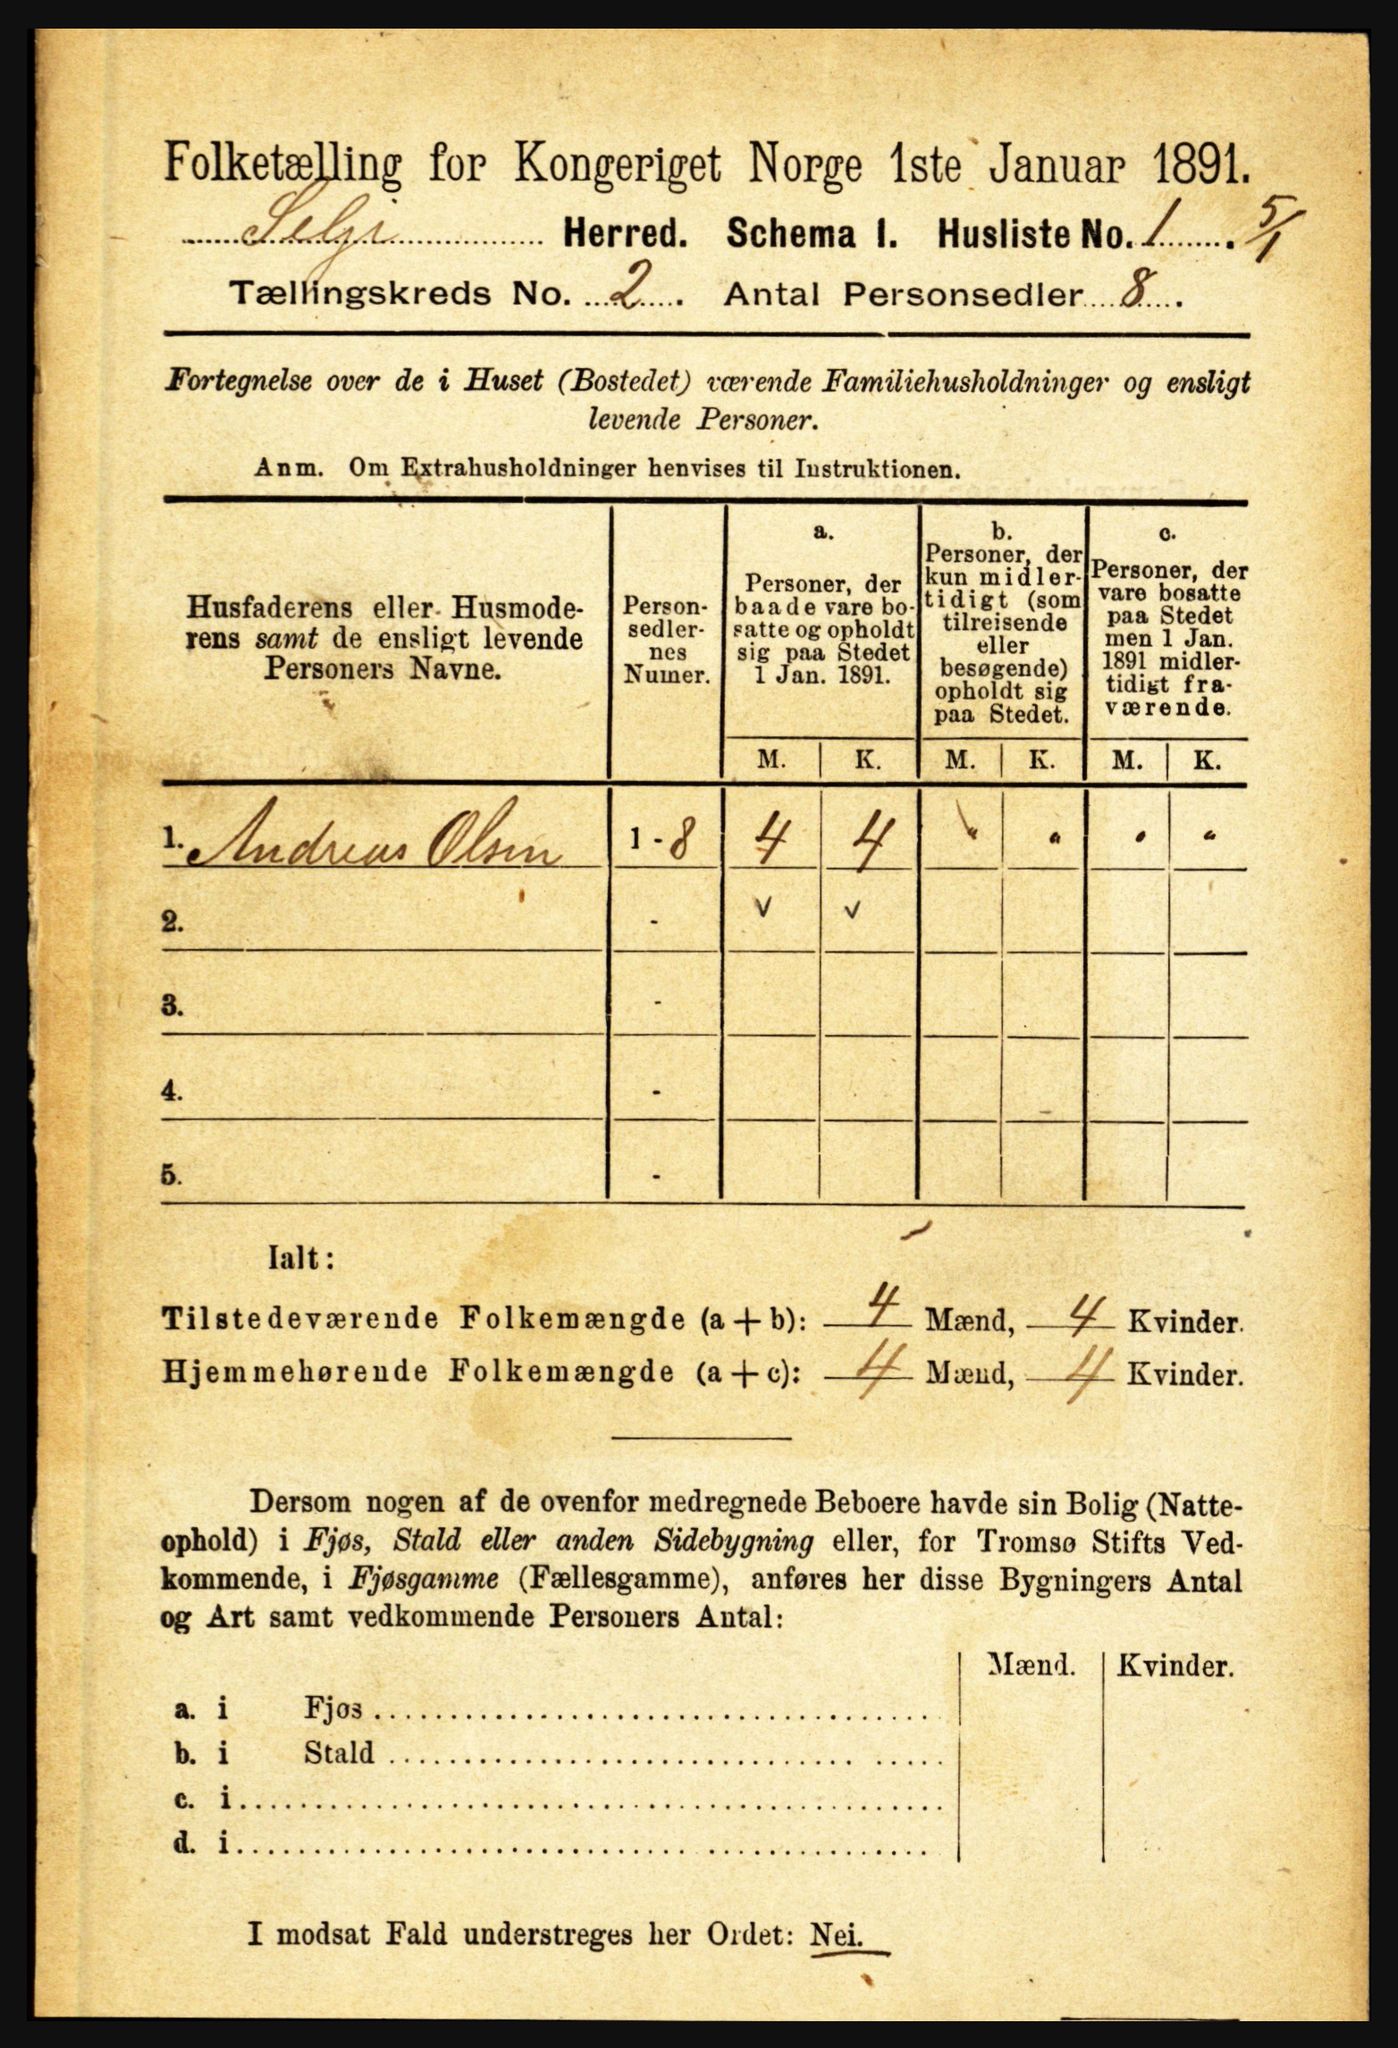 Folketælling for Kongeriget Norge 1ste Januar 1891.
Selje Herred. Schema I. Husliste No. 1. 5/1
Tællingskreds No. 2. Antal Personsedler 8.
Fortegnelse over de i Huset (Bostedet) værende Familiehusholdninger og ensligt
levende Personer.
Anm. Om Extrahusholdninger henvises til Instruktionen.
Husfaderens eller Husmode-
rens samt de ensligt levende
Personers Navne.
Person-
sedler-
nes
Numer.
a.
Personer, der
baade vare bo-
satte og opholdt
sig paa Stedet
1 Jan. 1891.
b.
Personer, der
kun midler-
tidigt (som
tilreisende
eller
besøgende)
opholdt sig
paa Stedet.
c.
Personer, der
vare bosatte
paa Stedet
men 1 Jan.
1891 midler-
tidigt fra-
værende.
M. K. M. K. M. K.
1. Andreas Olsen 1 - 8 4 4 " " " "
2. - ✓ ✓
3. -
4. -
5. -
Ialt:
Tilstedeværende Folkemængde (a + b): 4 Mænd, 4 Kvinder.
Hjemmehørende Folkemængde (a + c): 4 Mænd, 4 Kvinder.
Dersom nogen af de ovenfor medregnede Beboere havde sin Bolig (Natte-
ophold) i Fjøs, Stald eller anden Sidebygning eller, for Tromsø Stifts Ved-
kommende, i Fjøsgamme (Fællesgamme), anføres her disse Bygningers Antal
og Art samt vedkommende Personers Antal:
Mænd. Kvinder.
a. i Fjøs
b. i Stald
c. i
d. i
I modsat Fald understreges her Ordet: Nei.